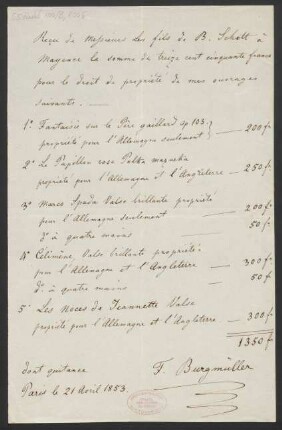 Reçu de Messieurs les fils de B. Schott à
Mayence la somme de treize cent cinquante francs
pour le droit de propriété de mes ouvrages
suivants.
1° Fantaisie sur le Père gaillard op 103.
propriété pour l'Allemagne seulement — 200 f.
2° Le Papillon rose Polka mazurka
propriété pour l'Allemagne et l'Angleterre — 250 f.
3° Marco Spada Valse brillante propriété
pour l'Allemagne seulement — 200 f.
d° à quatre mains — 50 f.
4° Célimène, Valse brillante propriété
pour l'Allemagne et l'Angleterre — 300 f.
d° à quatre mains — 50 f.
5° Les Noces de Jeannette Valse
propriété pour l'Allemagne et l'Angleterre — 300 f.
1350 f.
dont quittance
F. Burgmüller
Paris le 21 Avril 1853.